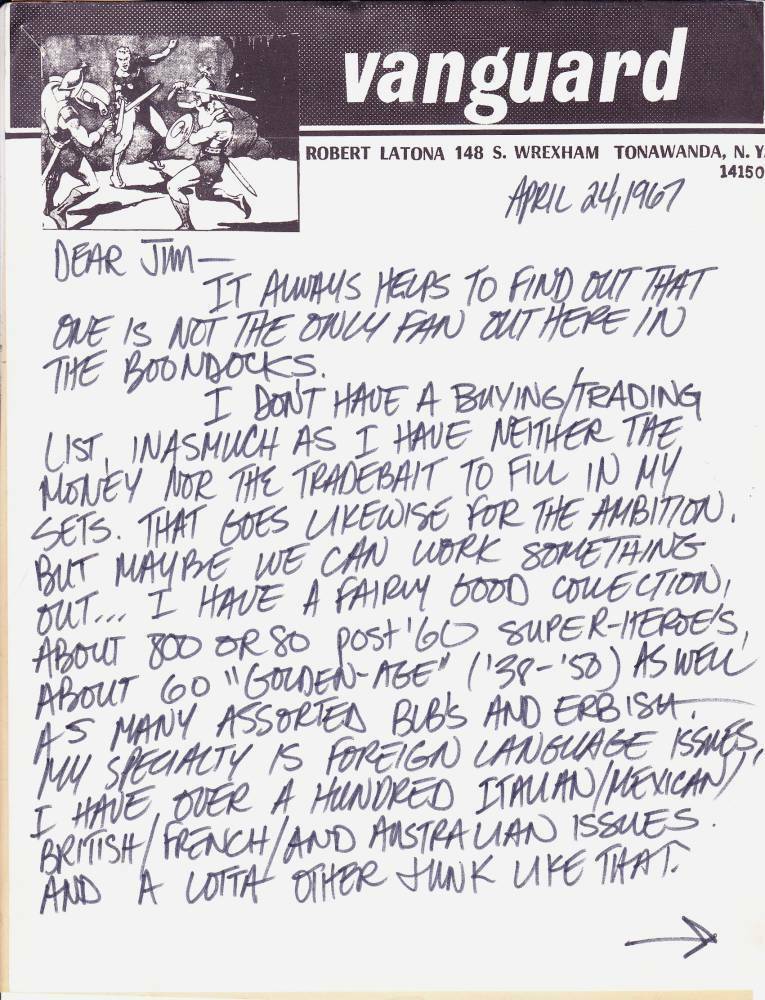 vanguard
ROBERT LATONA 148 S. WREXHAM TONAWANDA, N.Y.
14150
APRIL 24, 1967
DEAR JIM—
IT ALWAYS HELPS TO FIND OUT THAT
ONE IS NOT THE ONLY FAN OUT HERE IN
THE BOONDOCKS.
I DON'T HAVE A BUYING/TRADING
LIST, INASMUCH AS I HAVE NEITHER THE
MONEY NOR THE TRADEBAIT TO FILL IN MY
SETS. THAT GOES LIKEWISE FOR THE AMBITION.
BUT MAYBE WE CAN WORK SOMETHING
OUT... I HAVE A FAIRLY GOOD COLLECTION,
ABOUT 800 OR SO POST '60 SUPER-HEROE'S,
ABOUT 60 "GOLDEN-AGE" ('38-'50) AS WELL
AS MANY ASSORTED BLB'S AND ERBISH.
MY SPECIALTY IS FOREIGN LANGUAGE ISSUES,
I HAVE OVER A HUNDRED ITALIAN/MEXICAN/
BRITISH/FRENCH/AND AUSTRALIAN ISSUES.
AND A LOTTA OTHER JUNK LIKE THAT.
→